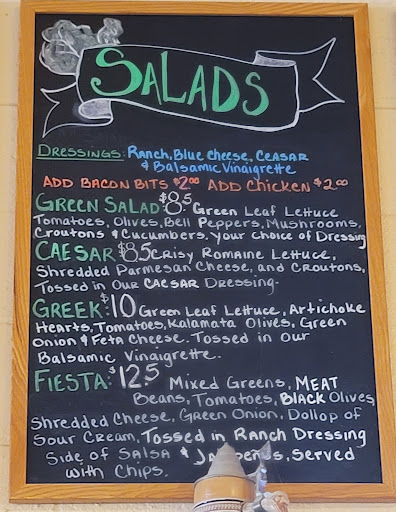 SALADS
DRESSINGS: RANCH, BLUE CHEESE, CEASAR
& BALSAMIC VINAIGRETTE
ADD BACON BITS $2.00 ADD CHICKEN $2.00
GREEN SALAD $8.5 GREEN LEAF LETTUCE
TOMATOES, OLIVES, BELL PEPPERS, MUSHROOMS,
CROUTONS & CUCUMBERS, YOUR CHOICE OF DRESSING
CAESAR $8.5 CRISY ROMAINE LETTUCE,
SHREDDED PARMESAN CHEESE, AND CROUTONS,
TOSSED IN OUR CAESAR DRESSING.
GREEK: $10 GREEN LEAF LETTUCE, ARTICHOKE
HEARTS, TOMATOES, KALAMATA OLIVES, GREEN
ONION & FETA CHEESE. TOSSED IN OUR
BALSAMIC VINAIGRETTE.
FIESTA: $12.5 MIXED GREENS, MEAT
BEANS, TOMATOES, BLACK OLIVES,
SHREDDED CHEESE, GREEN ONION, DOLLOP OF
SOUR CREAM, TOSSED IN RANCH DRESSING
SIDE OF SALSA & SERVED
WITH CHIPS.